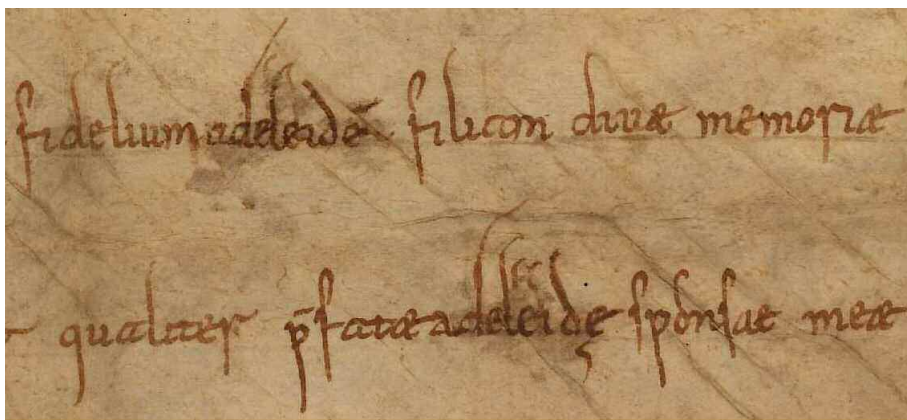 fidelium adeleidē filiam divae memoriae
qualiter p̄fatae adeleidę sponsae meae